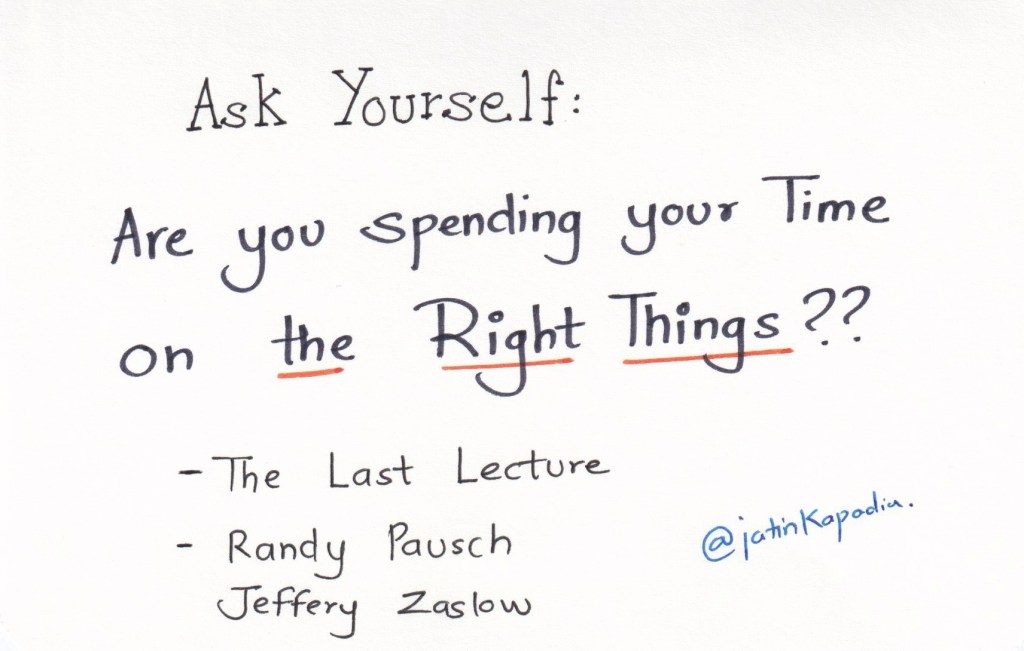 Ask Yourself:
Are you spending your Time
on the Right Things ??
- The Last Lecture
- Randy Pausch
Jeffery Zaslow
@jatinkapadia.